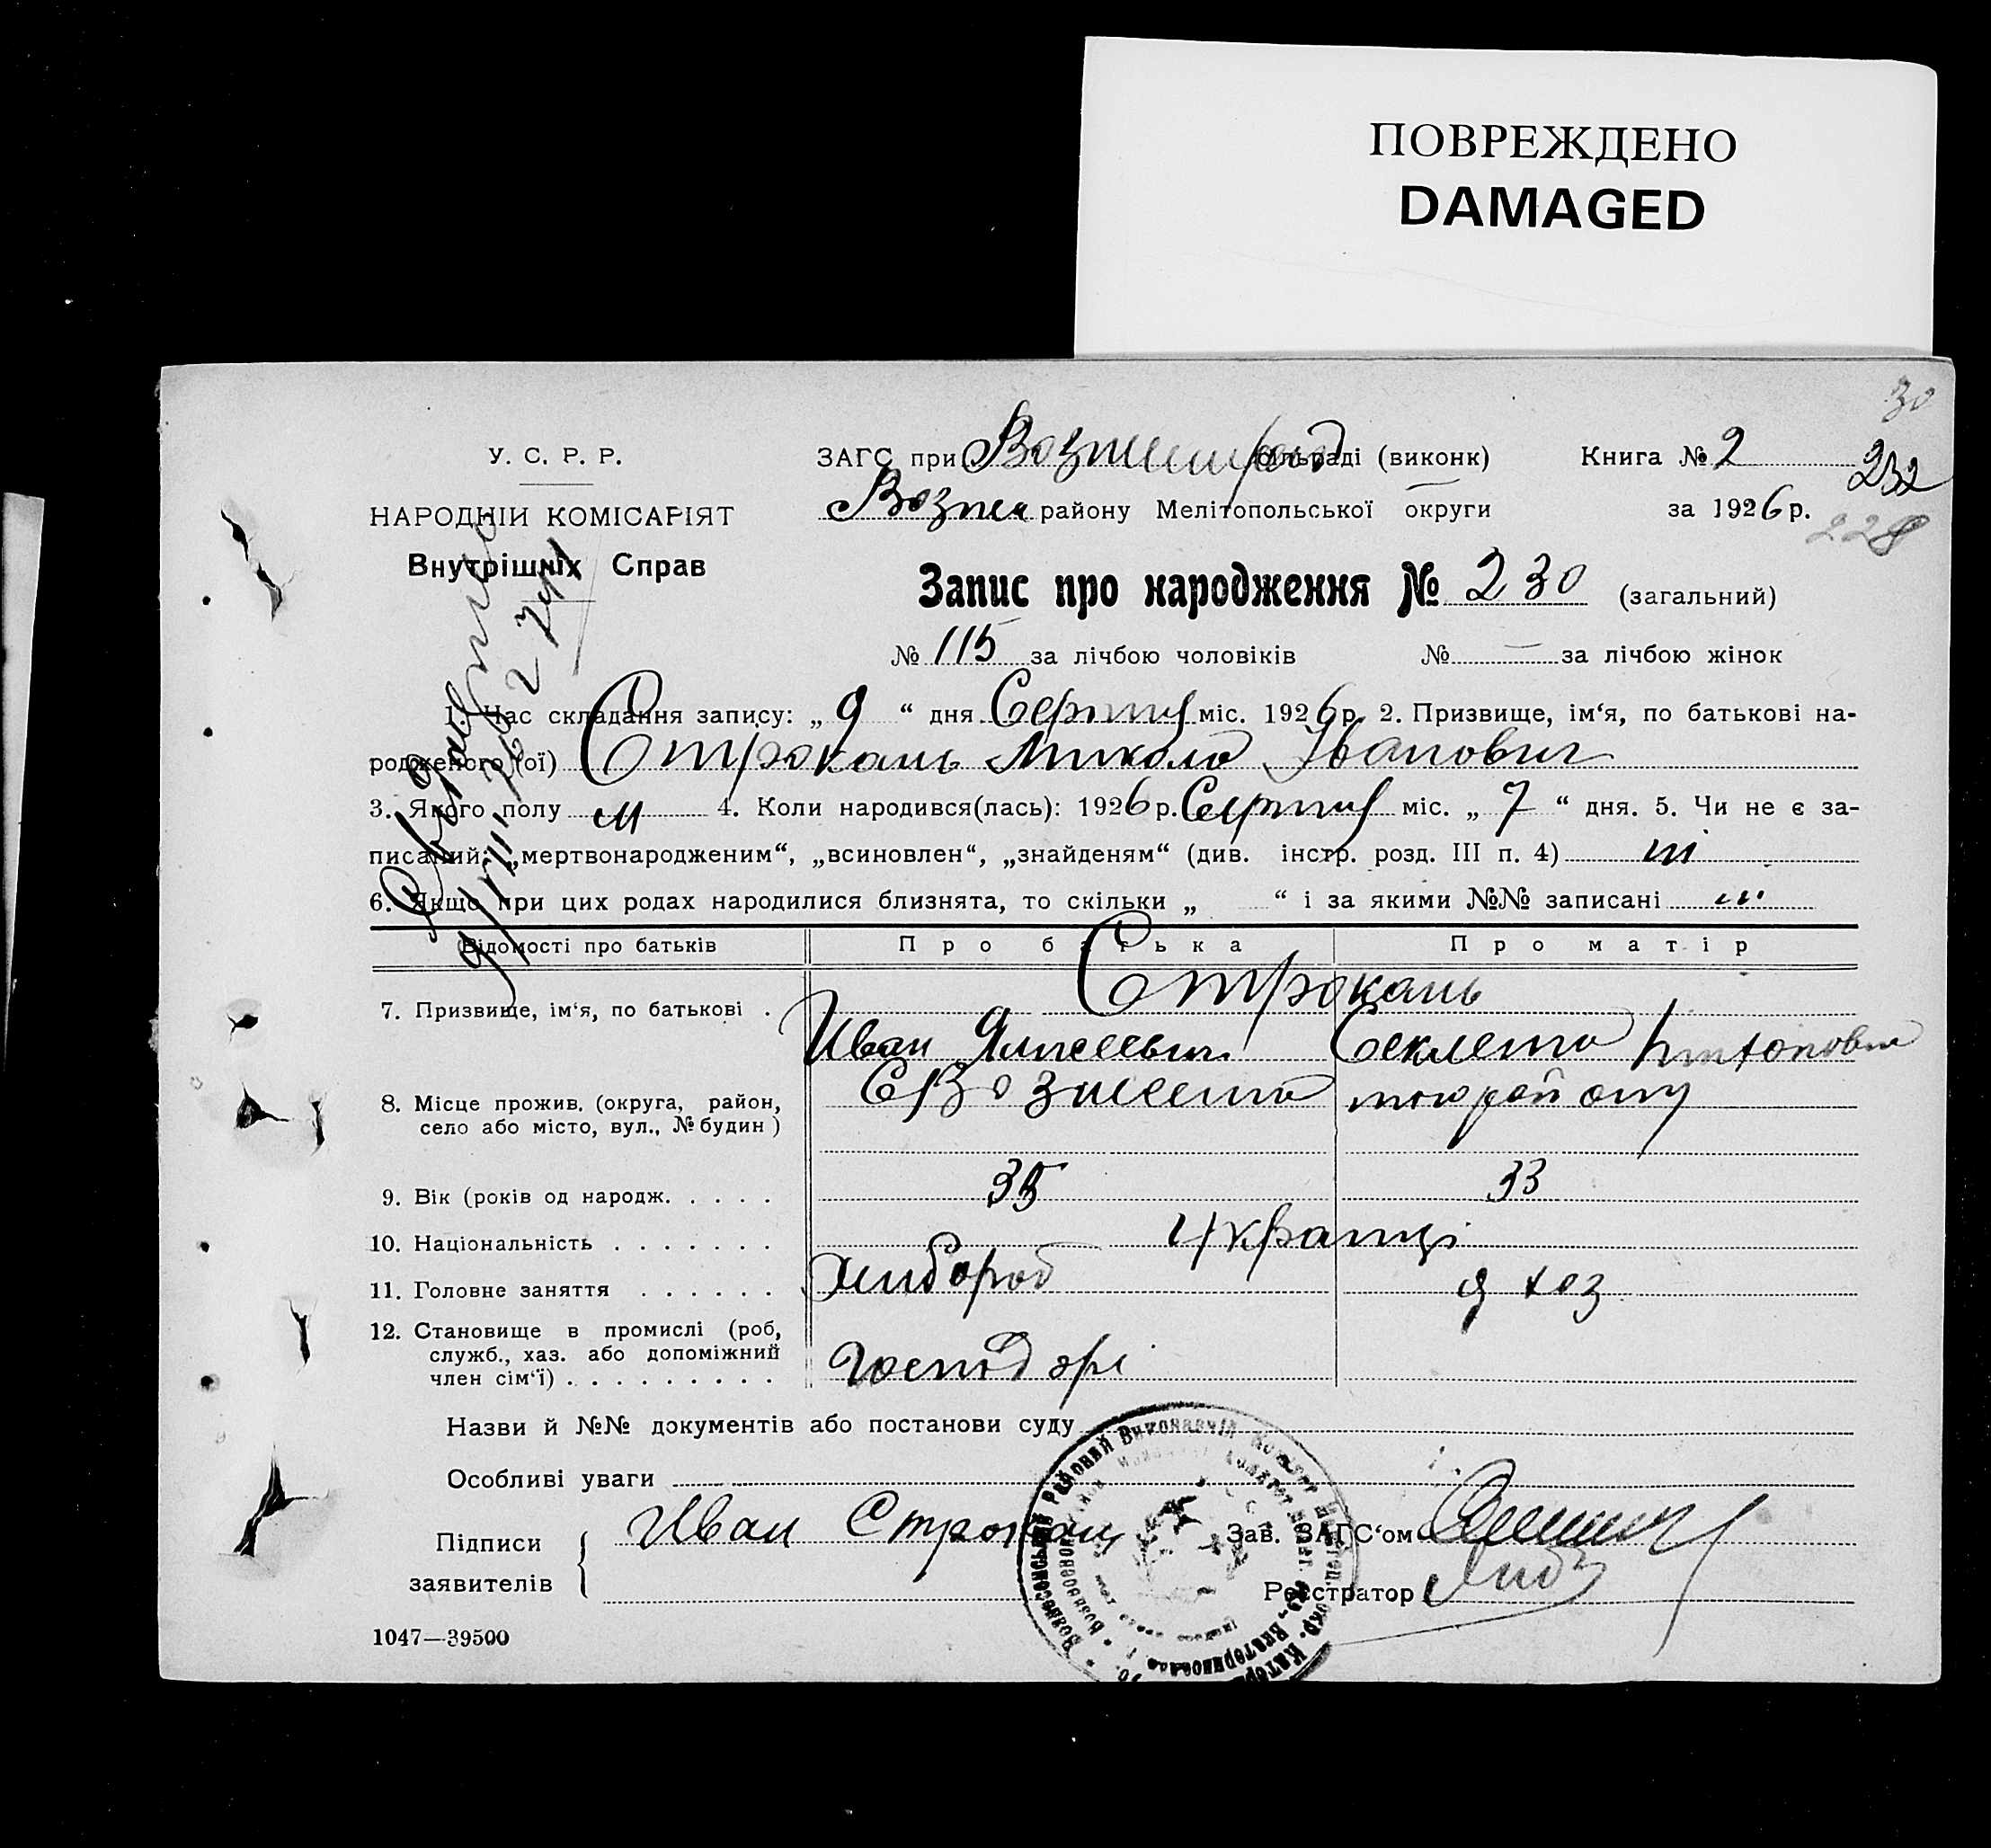 ПОВРЕЖДЕНО
DAMAGED
30
У. С. Р. Р.
ЗАГС при сільраді (виконк) Книга № 2
232
НАРОДНІЙ КОМІСАРІЯТ
Возне району Мелітопольської округи за 1926 р.
228
Внутрішніх Справ
Запис про народження № 230 (загальний)
№ 115 за лічбою чоловіків № — за лічбою жінок
1. Час складання запису: „ 9 “ дня Серпня міс. 1926 р. 2. Призвище, ім‘я, по батькові на-
родженого (ої) Строкань Микола Іванович
3. Якого полу м 4. Коли народився(лась): 1926 р. Серпня міс. „ 7 “ дня. 5. Чи не є за-
писаний: „мертвонародженим“, „всиновлен“, „знайденям“ (див. інстр. розд. III п. 4) ні
6. Якщо при цих родах народилися близнята, то скільки „ “ і за якими №№ записані
Відомості про батьків Про батька Про матір
Строкань
7. Призвище, ім‘я, по батькові .
Иван Секлета
8. Місце прожив. (округа, район,
село або місто, вул., № будин )
9. Вік (років од народж. . . . . 35 33
10. Національність . . . . . . . Українці
11. Головне заняття . . . . . . Хлібороб д хоз
12. Становище в промислі (роб,
служб., хаз. або допоміжний
член сім‘ї) . . . . . . . . . Господарі
Назви й №№ документів або постанови суду
Особливі уваги
Підписи
заявителів
Иван Строкань
Зав. ЗАГС‘ом
Реєстратор
1047—39500